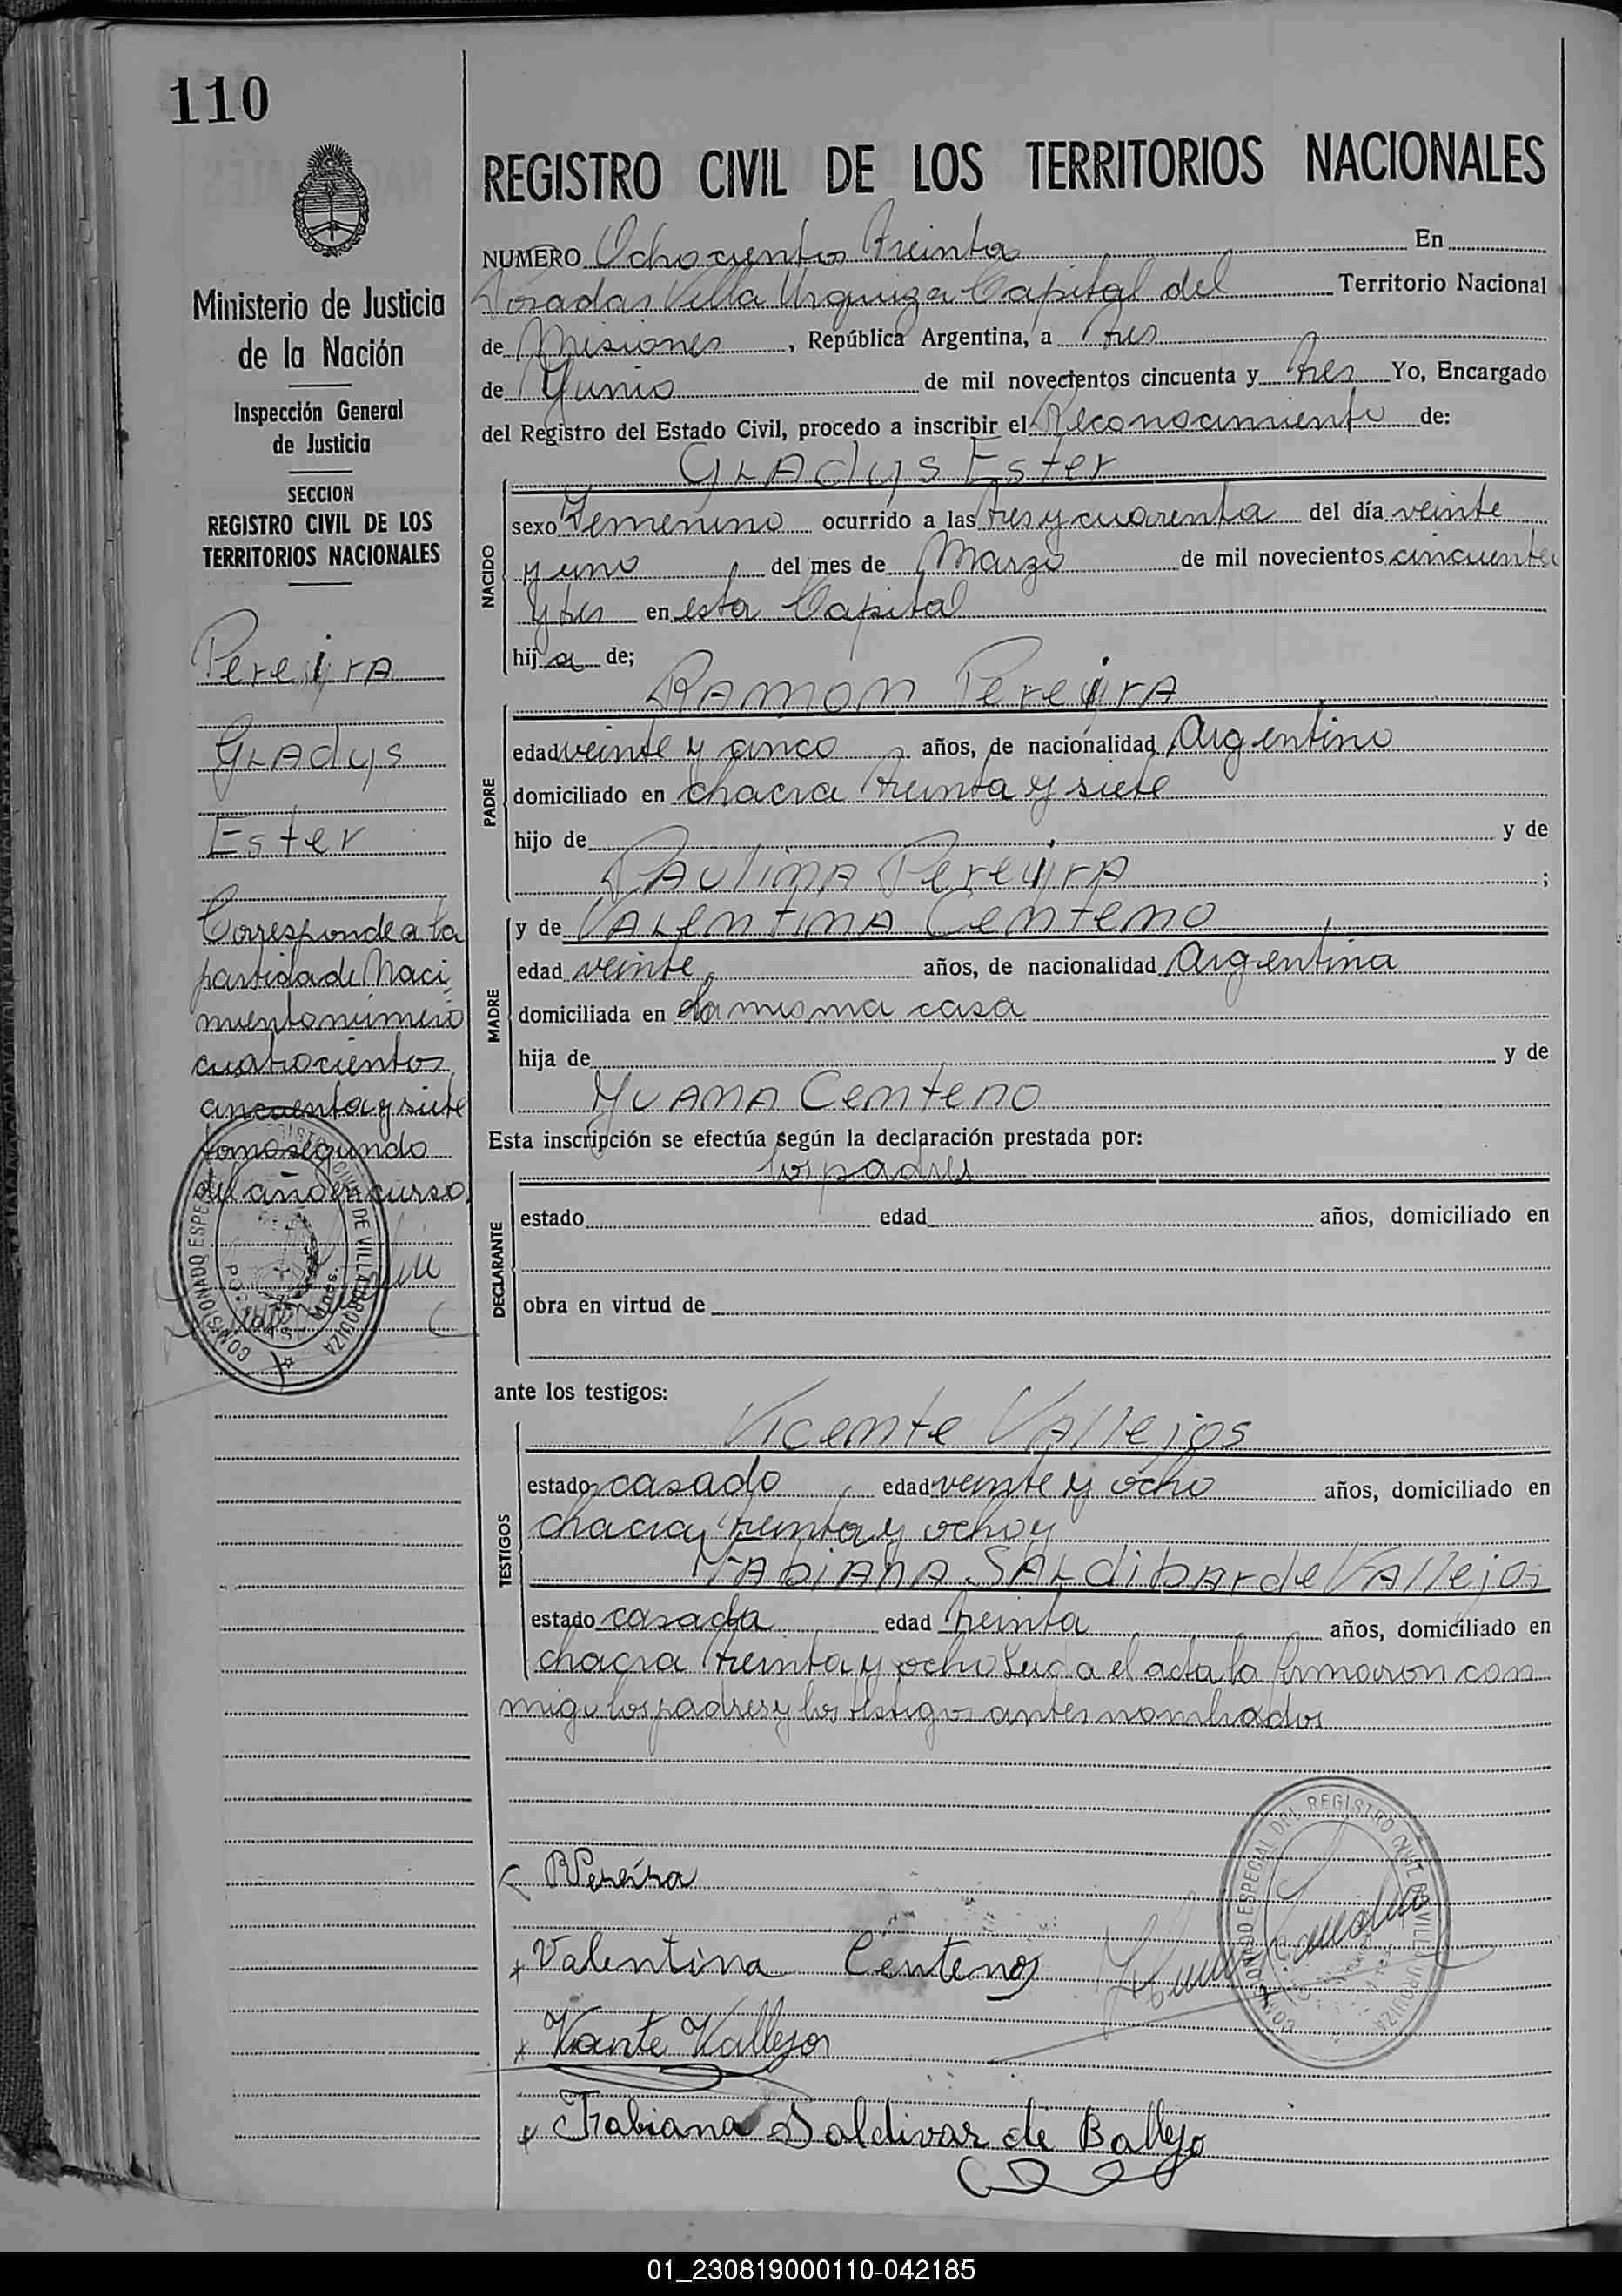 110
REGISTRO CIVIL DE LOS TERRITORIOS NACIONALES
NUMERO Ochocientos Treinta En
Posadas Villa Urquiza Capital del Territorio Nacional
de Misiones, República Argentina, a Tres
de Yunio de mil novecientos cincuenta y Tres Yo, Encargado
del Registro del Estado Civil, procedo a inscribir el Reconocimiento de:
GLADYS Ester
NACIDO
sexo Femenino ocurrido a las tres y cuarenta del día veinte
y uno del mes de Marzo de mil novecientos cincuenta
y tres en esta Capital
hija de;
RAMON PereirA
PADRE
edad veinte y cinco años, de nacionalidad Argentino
domiciliado en chacra treinta y siete
hijo de y de
PAULINA PereirA ;
MADRE
y de VALENTINA CENTENO
edad veinte años, de nacionalidad Argentina
domiciliada en la misma casa
hija de y de
YUANA CENTENO
Esta inscripción se efectúa según la declaración prestada por:
los padres
DECLARANTE
estado edad años, domiciliado en
obra en virtud de
ante los testigos:
Vicente VAllejos
TESTIGOS
estado casado edad veinte y ocho años, domiciliado en
chacra treinta y ocho y
FABIANA SALdibar de VAllejos
estado casada edad treinta años, domiciliado en
chacra treinta y ocho Leida el acta la firmaron con
migo los padres y los testigos antes nombrados
Ministerio de Justicia
de la Nación
Inspección General
de Justicia
SECCION
REGISTRO CIVIL DE LOS
TERRITORIOS NACIONALES
PereirA
GLADYS
Ester
Corresponde a la
partida de Naci
miento número
cuatrocientos
cincuenta y siete
tomo segundo
del año en curso
COMISIONADO ESPECIAL DEL REGISTRO CIVIL DE VILLA URQUIZA
POSADAS Mnes.
RPereira
Valentina Centeno
Vicente Vallejos
Fabiana Saldivar de Ballejo
COMISIONADO ESPECIAL DEL REGISTRO CIVIL DE VILLA URQUIZA
01_230819000110-042185